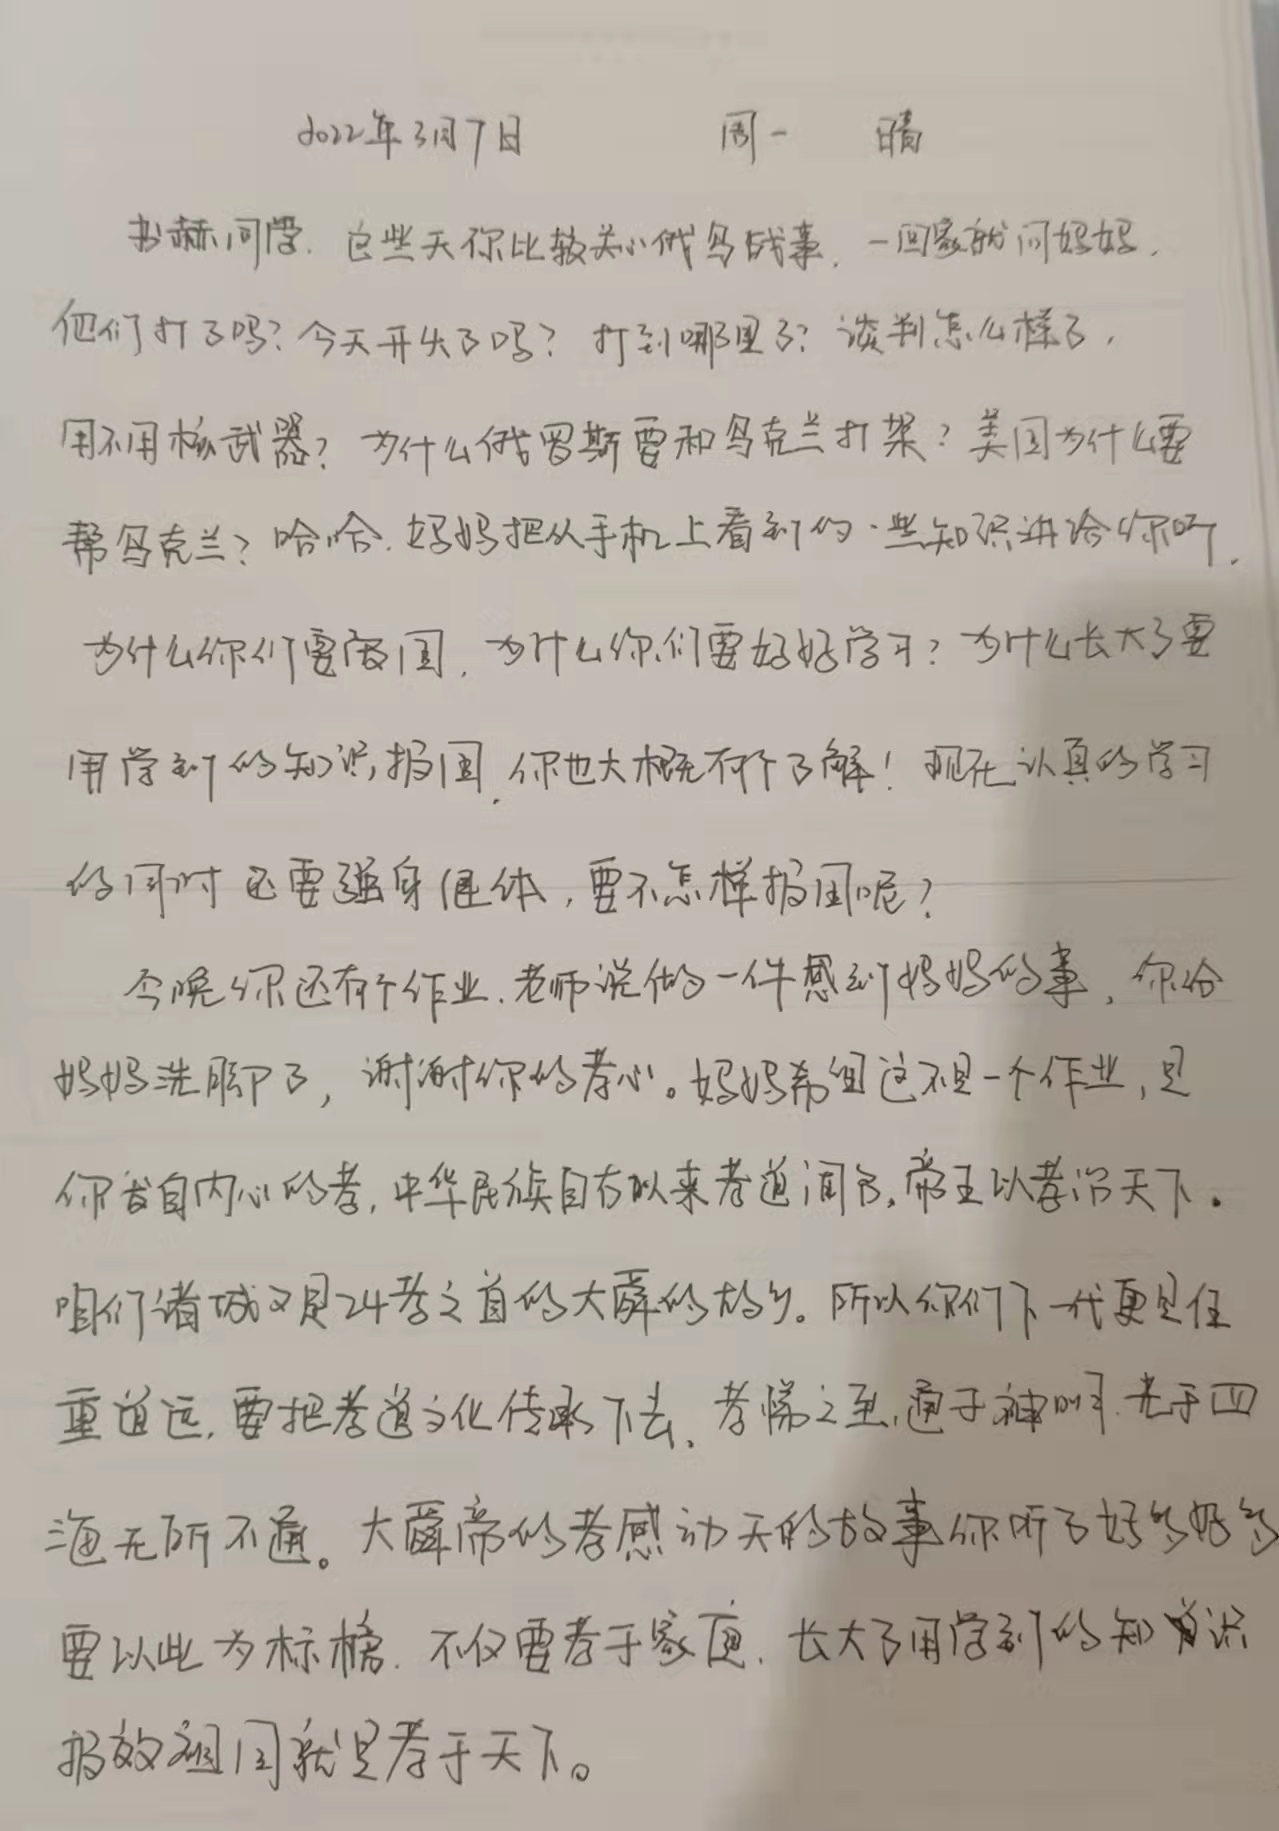 2022年3月7日 周一 晴
书赫同学.这些天你比较关心俄乌战事.一回家就问妈妈.
他们打了吗?今天开火了吗?打到哪里了?谈判怎么样了,
用不用核武器?为什么俄罗斯要和乌克兰打架?美国为什么要
帮乌克兰?哈哈.妈妈把从手机上看到的一些知识讲给你听.
为什么你们要爱国,为什么你们要好好学习?为什么长大了要
用学到的知识报国,你也大概有个了解!现在认真的学习
的同时还要强身健体,要不怎样报国呢?
今晚你还有个作业.老师说做一件感到妈妈的事,你给
妈妈洗脚了,谢谢你的孝心。妈妈希望这不是一个作业,是
你发自内心的孝,中华民族自古以来孝道闻名,帝王以孝治天下。
咱们诸城又是24孝之首的大舜的故乡。所以你们下一代更是任
重道远,要把孝道文化传承下去.孝悌之至,通于神明.光于四
海无所不通。大舜帝的孝感动天的故事你听了好多好多
要以此为标榜.不仅要孝于家庭.长大了用学到的知识
报效祖国就是孝于天下。